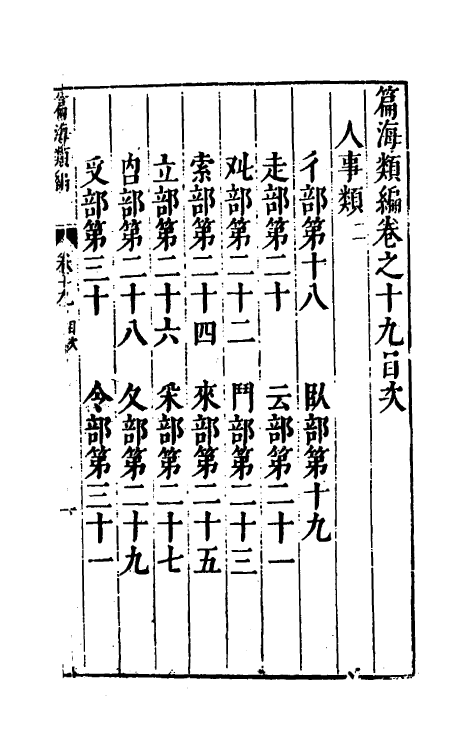 篇海類編卷之十九目次
人事類二
彳部第十八 臥部第十九
走部第二十 云部第二十一
廾部第二十二 鬥部第二十三
索部第二十四 來部第二十五
立部第二十六 釆部第二十七
部第二十八 夂部第二十九
部第三十 令部第三十一
篇海類編 卷十九 目次